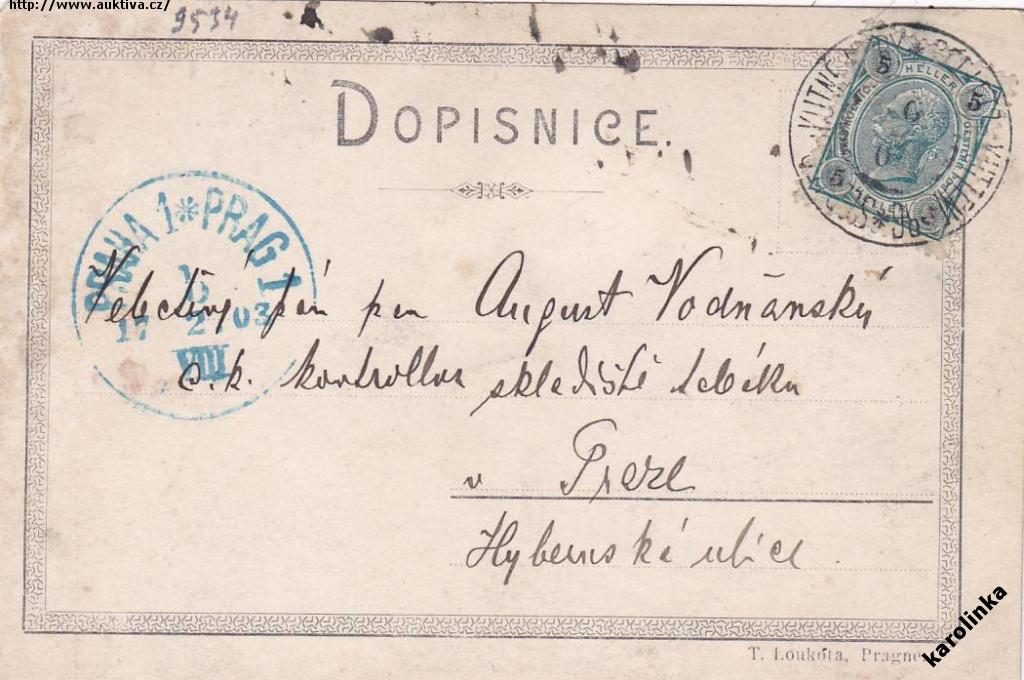 http://www.auktiva.cz/
9534
DOPISNICE.
5 HELLER 5
5
PRAHA 1 * PRAG 1
17 2 03
VIII
Velectěný pán pan August Vodňanský
c. k. kontrollor skladiště tabáku
v Praze
Hybernská ulice
T. Loukóta, Prague
karolinka